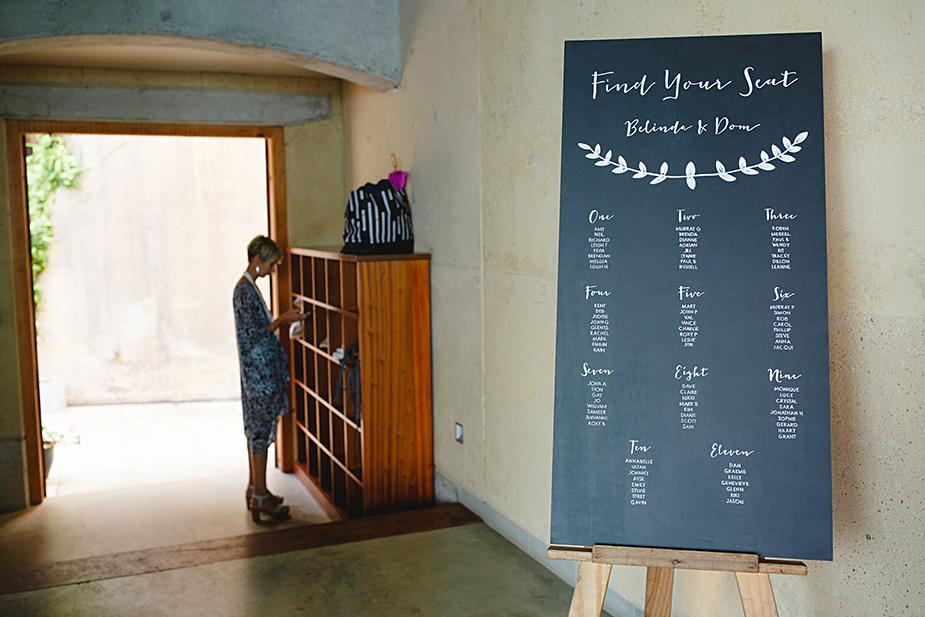 Find Your Seat
Belinda & Dom
One
AMY
NEIL
RICHARD
LEIGH T
PETA
BRENDAN
MELISSA
LEIGH H
Two
MURRAY G
BRENDA
DIANNE
ADRIAN
JILL
LYNNE
PAUL B
RUSSELL
Three
ROBYN
MERRILL
PAUL B
WENDY
KIT
TRACEY
DILLON
LEANNE
Four
KENT
DEB
JUDITH
JOHN G
GLENYS
RACHEL
MARK
ENGIN
KATH
Five
MARY
JOHN P
VAL
VINCE
CHARLIE
ROXY P
LESLIE
JON
Six
MURRAY P
SIMON
ROB
CAROL
PHILLIP
STEVE
ANNA
JACQUI
Seven
JOHN A
TION
GAY
JO
WILLIAM
SAMEER
SHIVANNI
ROXY B
Eight
DAVE
CLAIRE
NIKKI
MARK B
KIM
DIANE
SCOTT
SAM
Nine
MONIQUE
LUCY
CRYSTAL
SARA
JONATHAN H
SOPHIE
GERARD
HILARY
GRANT
Ten
ANNABELLE
JOHNNY
AYSE
EMILY
STEVIE
GAVIN
Eleven
DAN
GRAEME
KELLY
GENEVIEVE
GLENN
RIKI
JASON